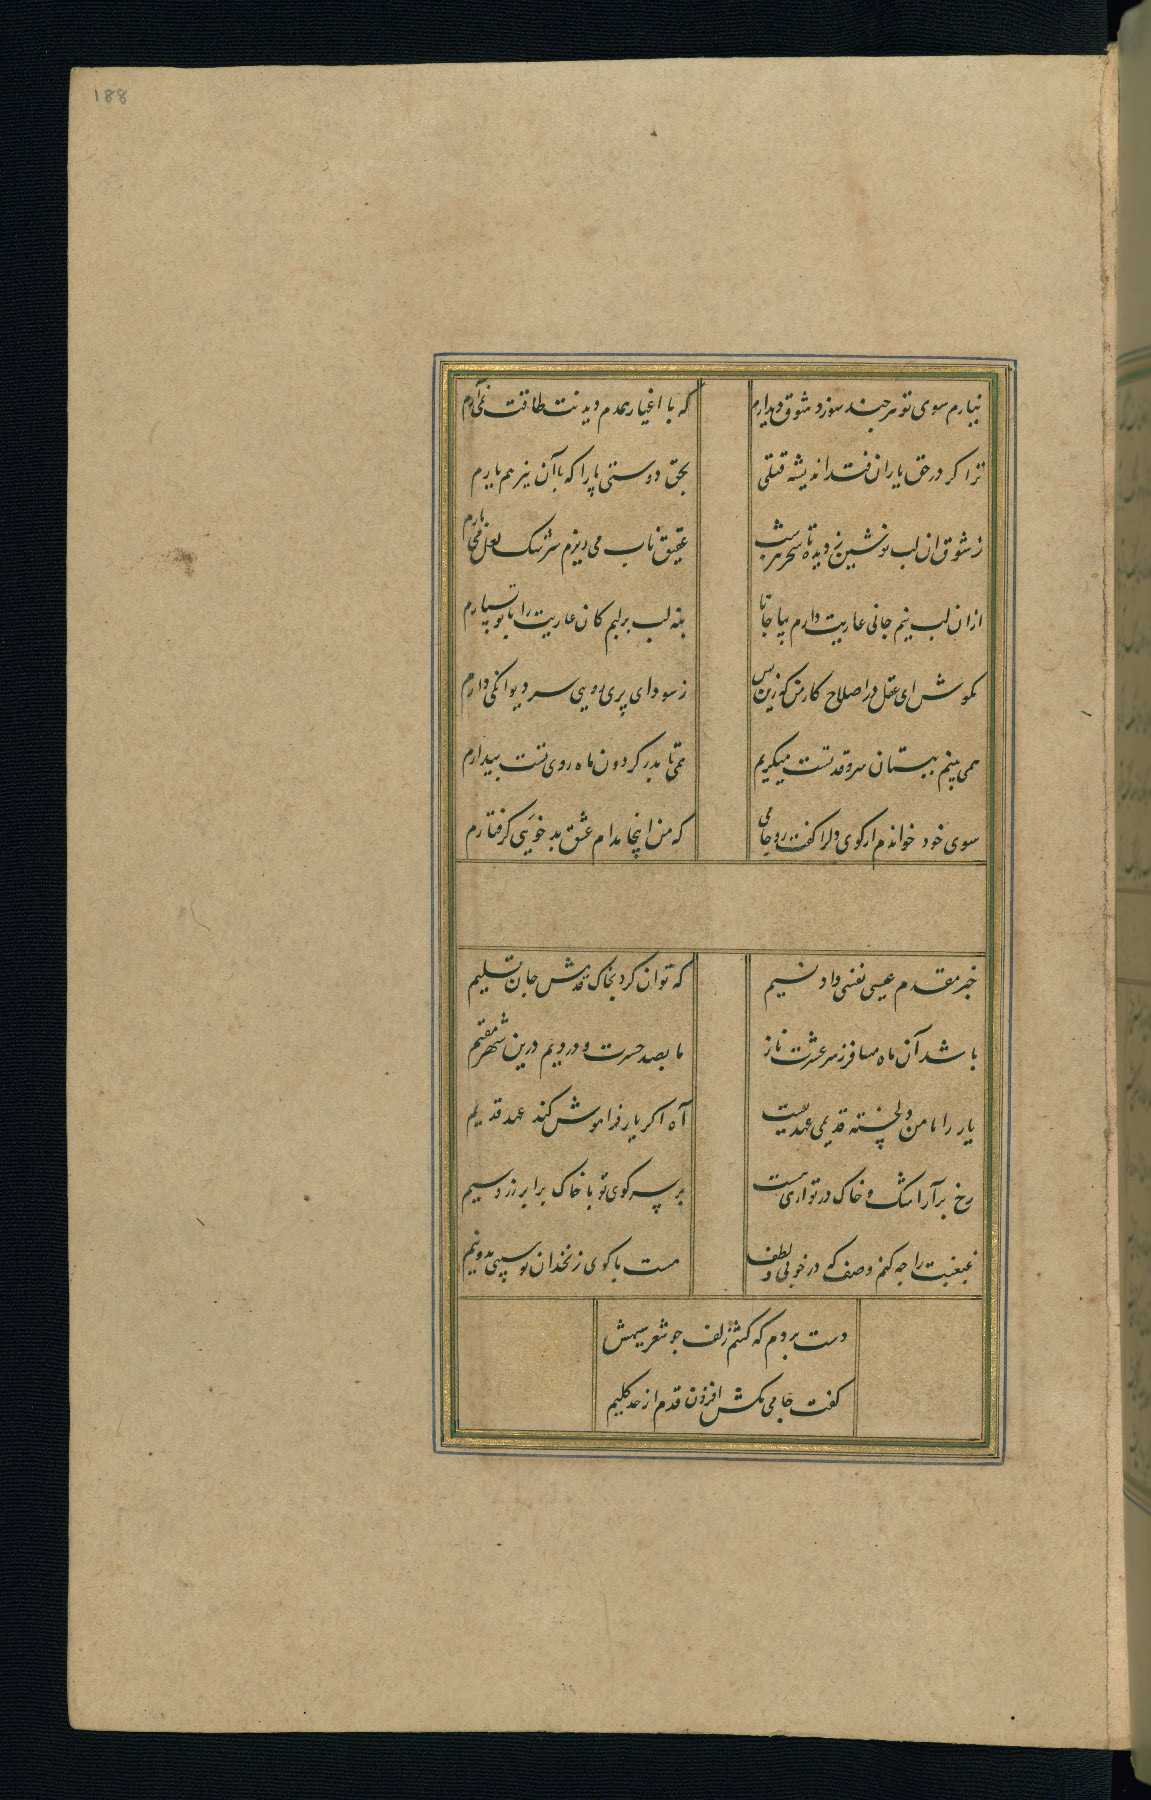 188
نیارم سوی تو هر چند سوزد شوق دیدارم
که با اغیار همدم دیدنت طاقت نمی‌آرم
ترا کر در حق یاران فتد اندیشه قتلی
بحق دوستی یارا که با آن نیز هم یارم
ز شوق ان لب نوشین ز دیده تا سحر هر شب
عقیق ناب می ریزم سرشک لعل می بارم
ازان لب نیم جانی عاریت دارم بیا جانا
بنه لب بر لبم کان عاریت را با تو بسپارم
مکوش ای عقل در اصلاح کار من کزین پس
ز سودای پری رویی سر دیوانکی دارم
همی بینم ببستان سرو قد تست میکریم
همی تابد بر کردون ماه روی تست پیدارم
سوی خود خواندم از کوی دلرا کفت رو جامی
که من اینجا مدام عشق بد خویی کرفتارم
خبر مقدم عیسی نفسی داد نسیم
که توان کرد بخاک قدمش جان تسلیم
باشد آن ماه مسافر ز سر عشرت و ناز
ما بصد حسرت و دردیم درین شهر مقیم
یار را با من دلخسته قدیمی عهدیست
آه اکر یار فراموش کند عهد قدیم
رخ بر آراشک و خاک در تو اری هست
بر سر کوی تو با خاک برابر زر و سیم
غبغبت را چه کنم وصف که در خوبی و لطف
هست با کوی زنخدان تو سیبی بدو نیم
دست بردم که کشم زلف چو شعر سیهش
کفت جامی مکش افزون قدم از حد کلیم